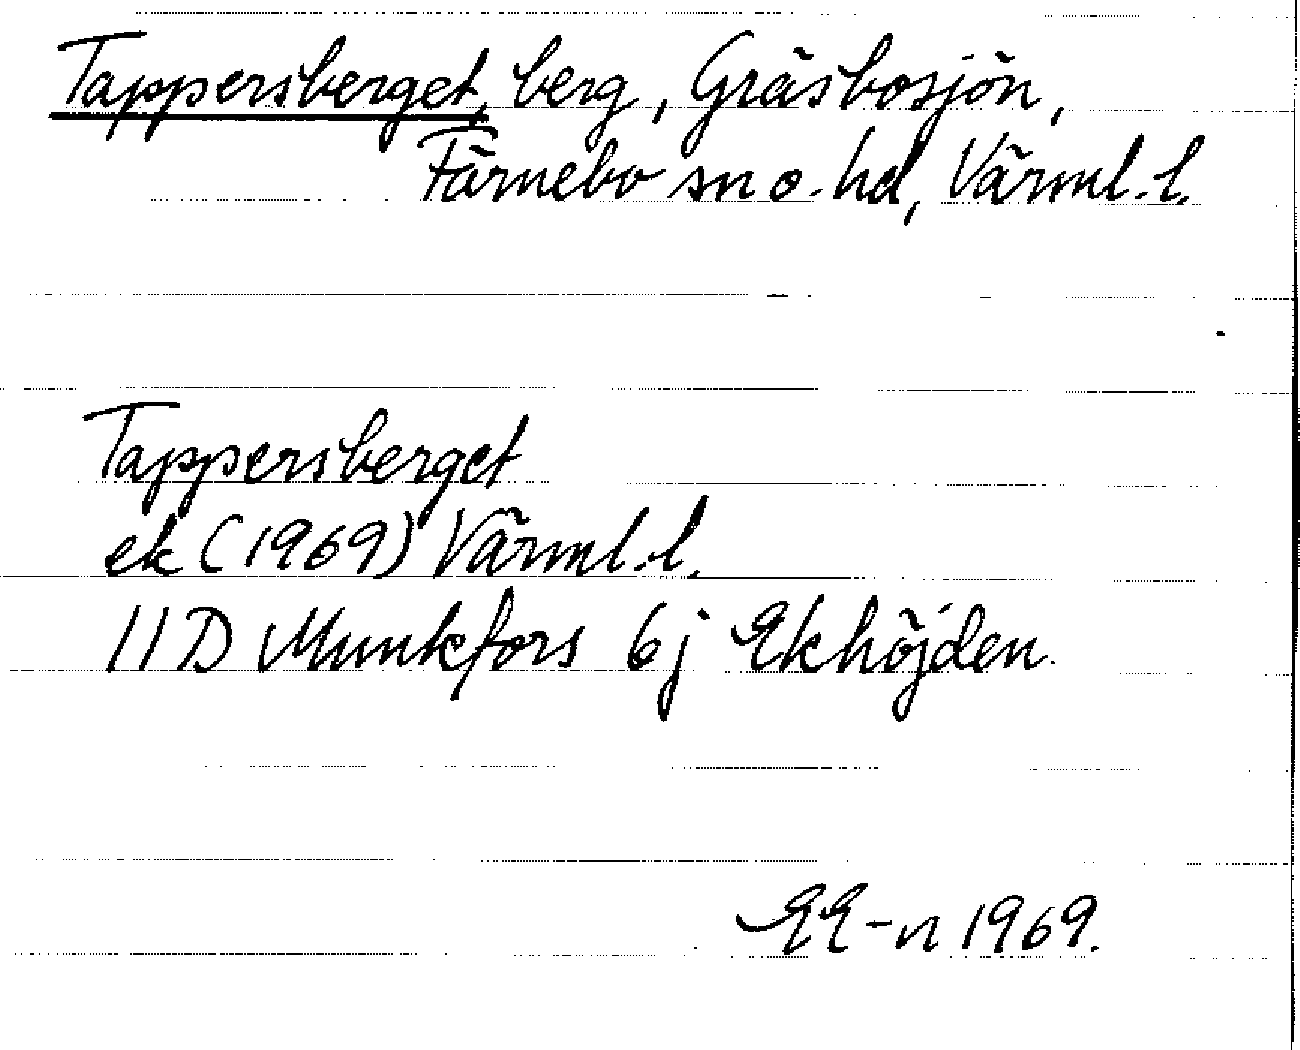 Tappersberget, berg, Gräsbosjön,
Färnebo sn o. hd, Värml. l.
Tappersberget
ek (1969) Värml. l.
11D Munkfors 6j Ekhöjden.
EE-n 1969.